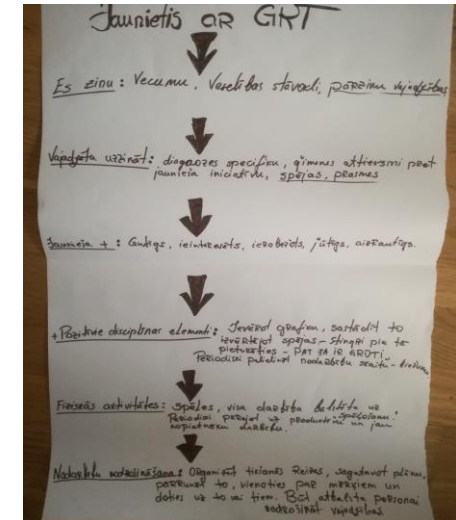 Jaunietis ar GRT
Es zinu: Vecumu, Veselības stāvokli, pārzinu vajadzības
Vajadzētu uzzināt: diagnozes specifiku, ģimenes attieksmi pret
jaunieša iniciatīvu, spējas, prasmes
Jaunieša + : ieinteresēts, ierobežots, jūtīgs, aizrautīgs.
+ Pozitīvie disciplīnas elementi: Ievērot grafiku, sastādīt to
izvērtējot spējas - Stingri pie tā
pieturēties - PAT JA IR GRŪTI
Periodiski palielināt nodarbību skaitu -
Fiziskās aktivitātes: Spēles, visa darbība balstīta uz
spēlēšanu.
Periodiski pārejot uz produktīvu un jau
nopietnāku darbību.
Nodarbību nodrošināšana: Organizēt tikšanās reizes, sagatavot plānu,
parrunāt to, vienoties par mērķiem un
doties uz to vai tiem. Būt atbalsta personai
nodrošināt vajadzības